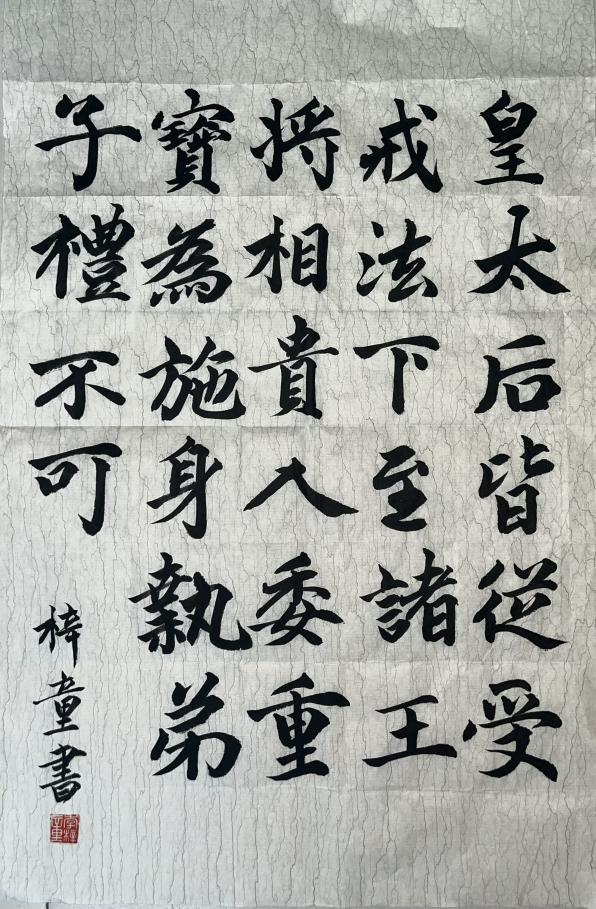 皇太后皆從受
戒法下至諸王
將相貴人委重
寶為施身執弟
子禮不可
梓童書